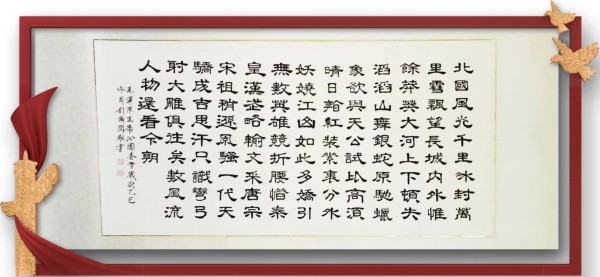 北國風光千里冰封萬
里雪飄望長城內外惟
餘莽莽大河上下頓失
滔滔山舞銀蛇原馳蠟
象欲與天公試比高須
晴日看紅裝素裹分外
妖嬈江山如此多嬌引
無數英雄競折腰惜秦
皇漢武略輸文采唐宗
宋祖稍遜風騷一代天
驕成吉思汗只識彎弓
射大雕俱往矣數風流
人物還看今朝
毛澤東主席沁園春雪歲次乙巳
敬書